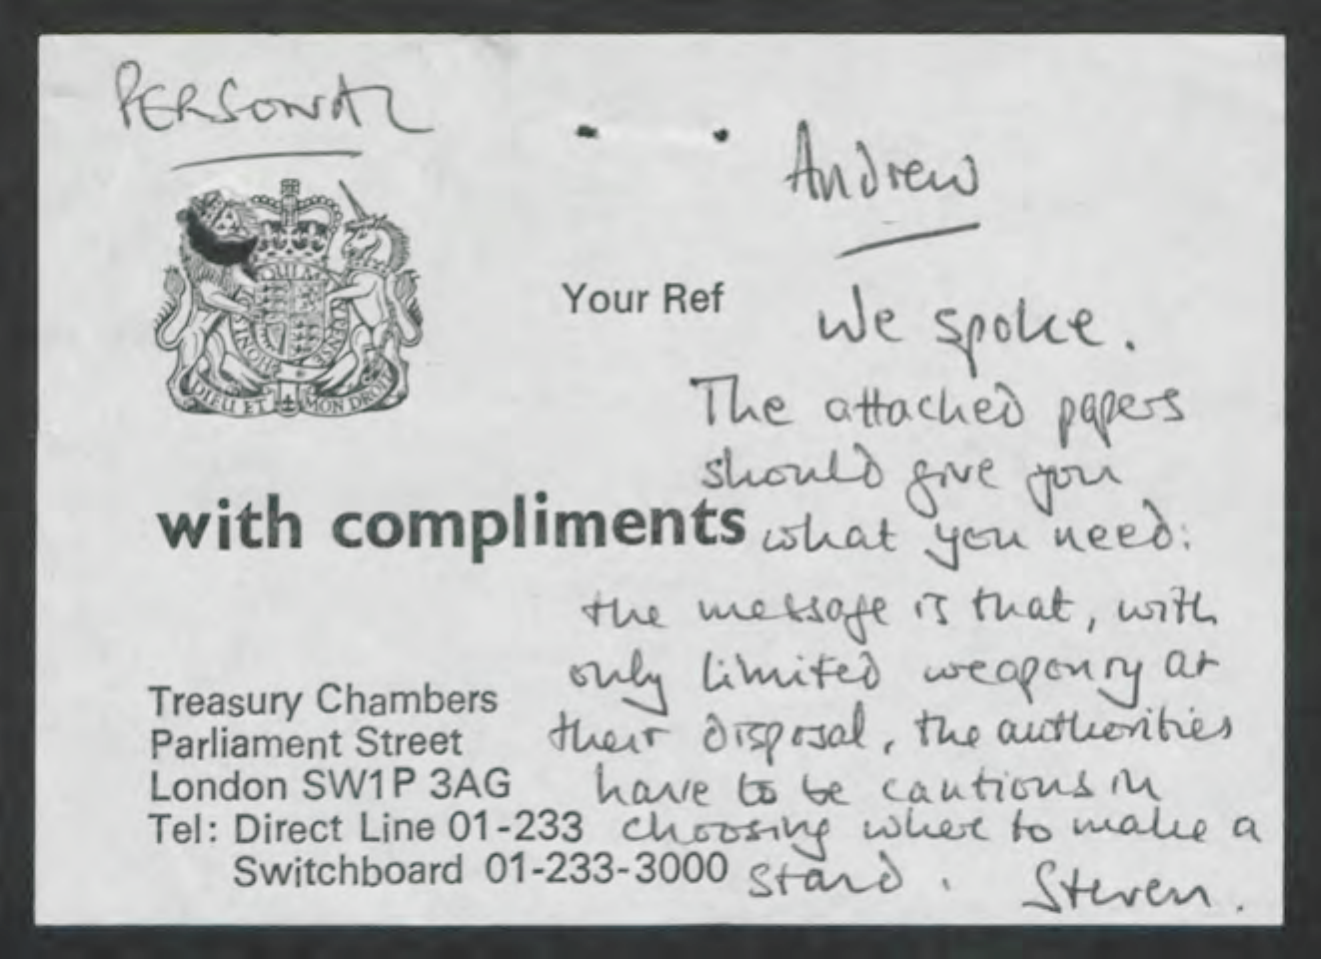 PERSONAL
Andrew
Your Ref
We spoke.
The attached papers
should give you
with compliments
what you need:
the message is that, with
only limited weaponry at
their disposal, the authorities
have to be cautious in
choosing where to make a
stand. Steven.
DIEU ET MON DROIT
Treasury Chambers
Parliament Street
London SW1P 3AG
Tel: Direct Line 01-233
Switchboard 01-233-3000